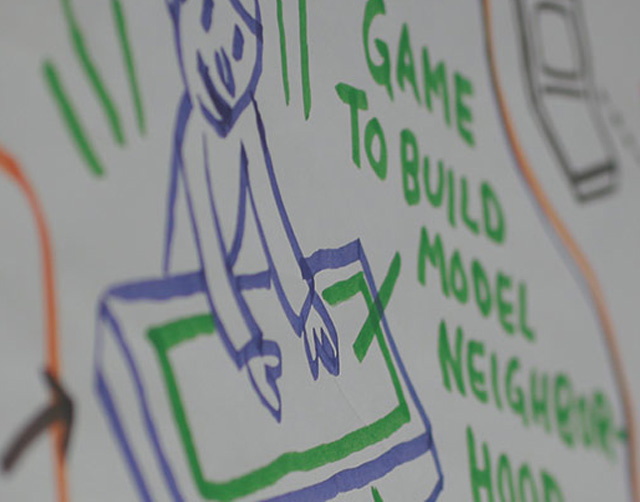 GAME
TO BUILD
MODEL
NEIGHBOR-
HOOD